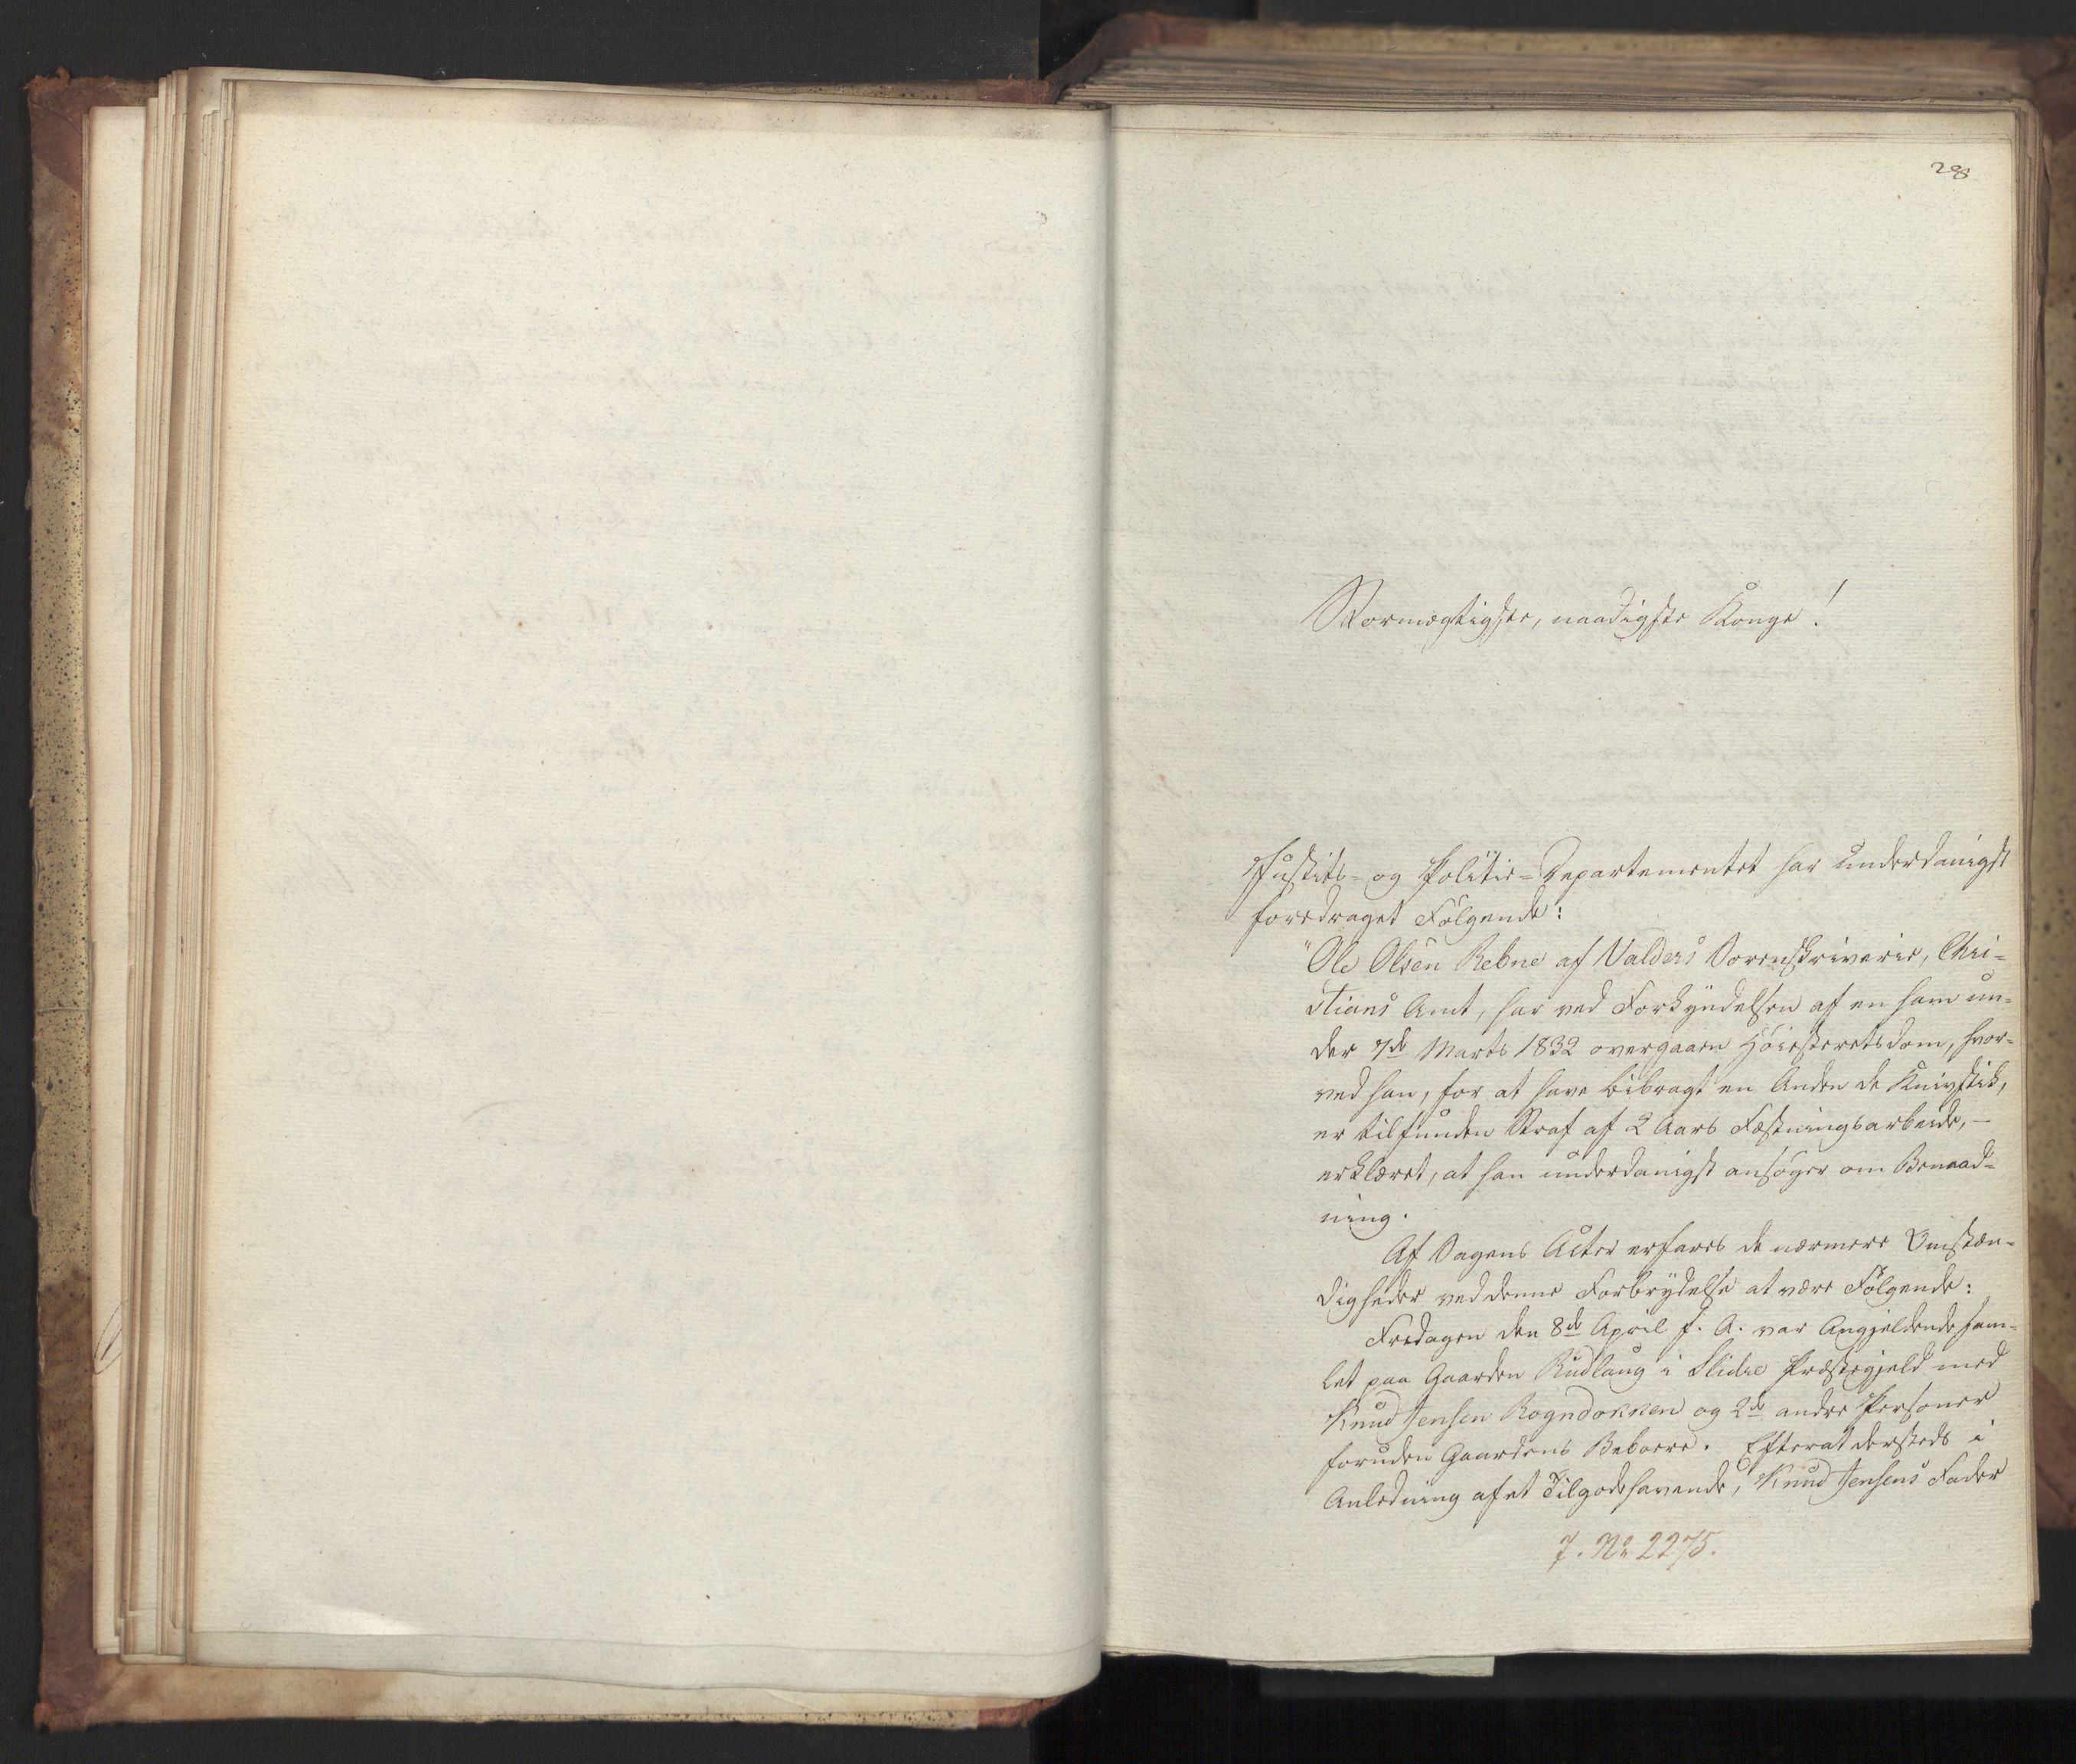 28
Stormægtigste, naadigste Konge!
Justits- og Politie-Departementet har underdanigst
foredraget Følgende:
"Ole Olsen Rebne af Valders Sorenskriverie, Chri-
stians Amt, har ved Forkyndelsen af en ham un-
der 7de Marts 1832 overgaaen Høiesteretsdom, hvor-
ved han, for at have bibragt en Anden de Knivstik,
er tilfunden Straf af 2 Aars Fæstningsarbeide, –
erklæret, at han underdanigst ansøger om Benaad-
ning.
Af Sagens Acter erfares de nærmere Omstæn-
digheder ved denne Forbrydelse at være Følgende:
Fredagen den 8de April f. A. var Angjeldende sam-
let paa Gaarden Rudlang i Slidre Præstegjeld med
Knud Jensen Rogndokken og 2de andre Personer
foruden Gaardens Beboere. Efterat dersteds i
Anledning af et Tilgodehavende, Knud Jensens Fader
7. No 2275.